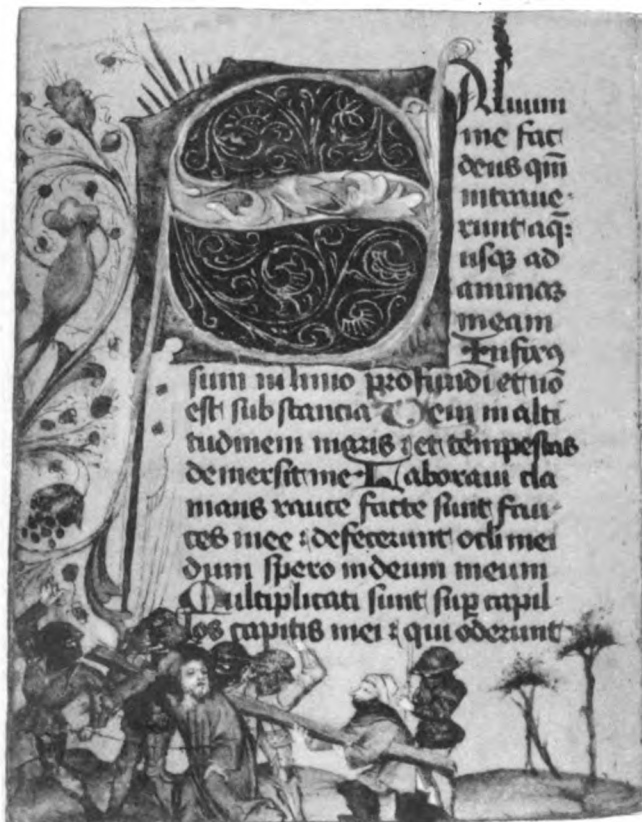 SAluum
me fac
deus qm̄
intraue-
runt aq̄:
usqꝫ ad
animaꝫ
meam
Infixꝰ
sum in limo profundi et nō
est substancia Veni in alti
tudinem maris : et tempestas
demersit me Laboraui cla
mans rauce facte sunt fau-
ces mee : defecerunt ocli mei
dum spero in deum meum
Multiplicati sunt sup̱ capil
los capitis mei : qui oderunt